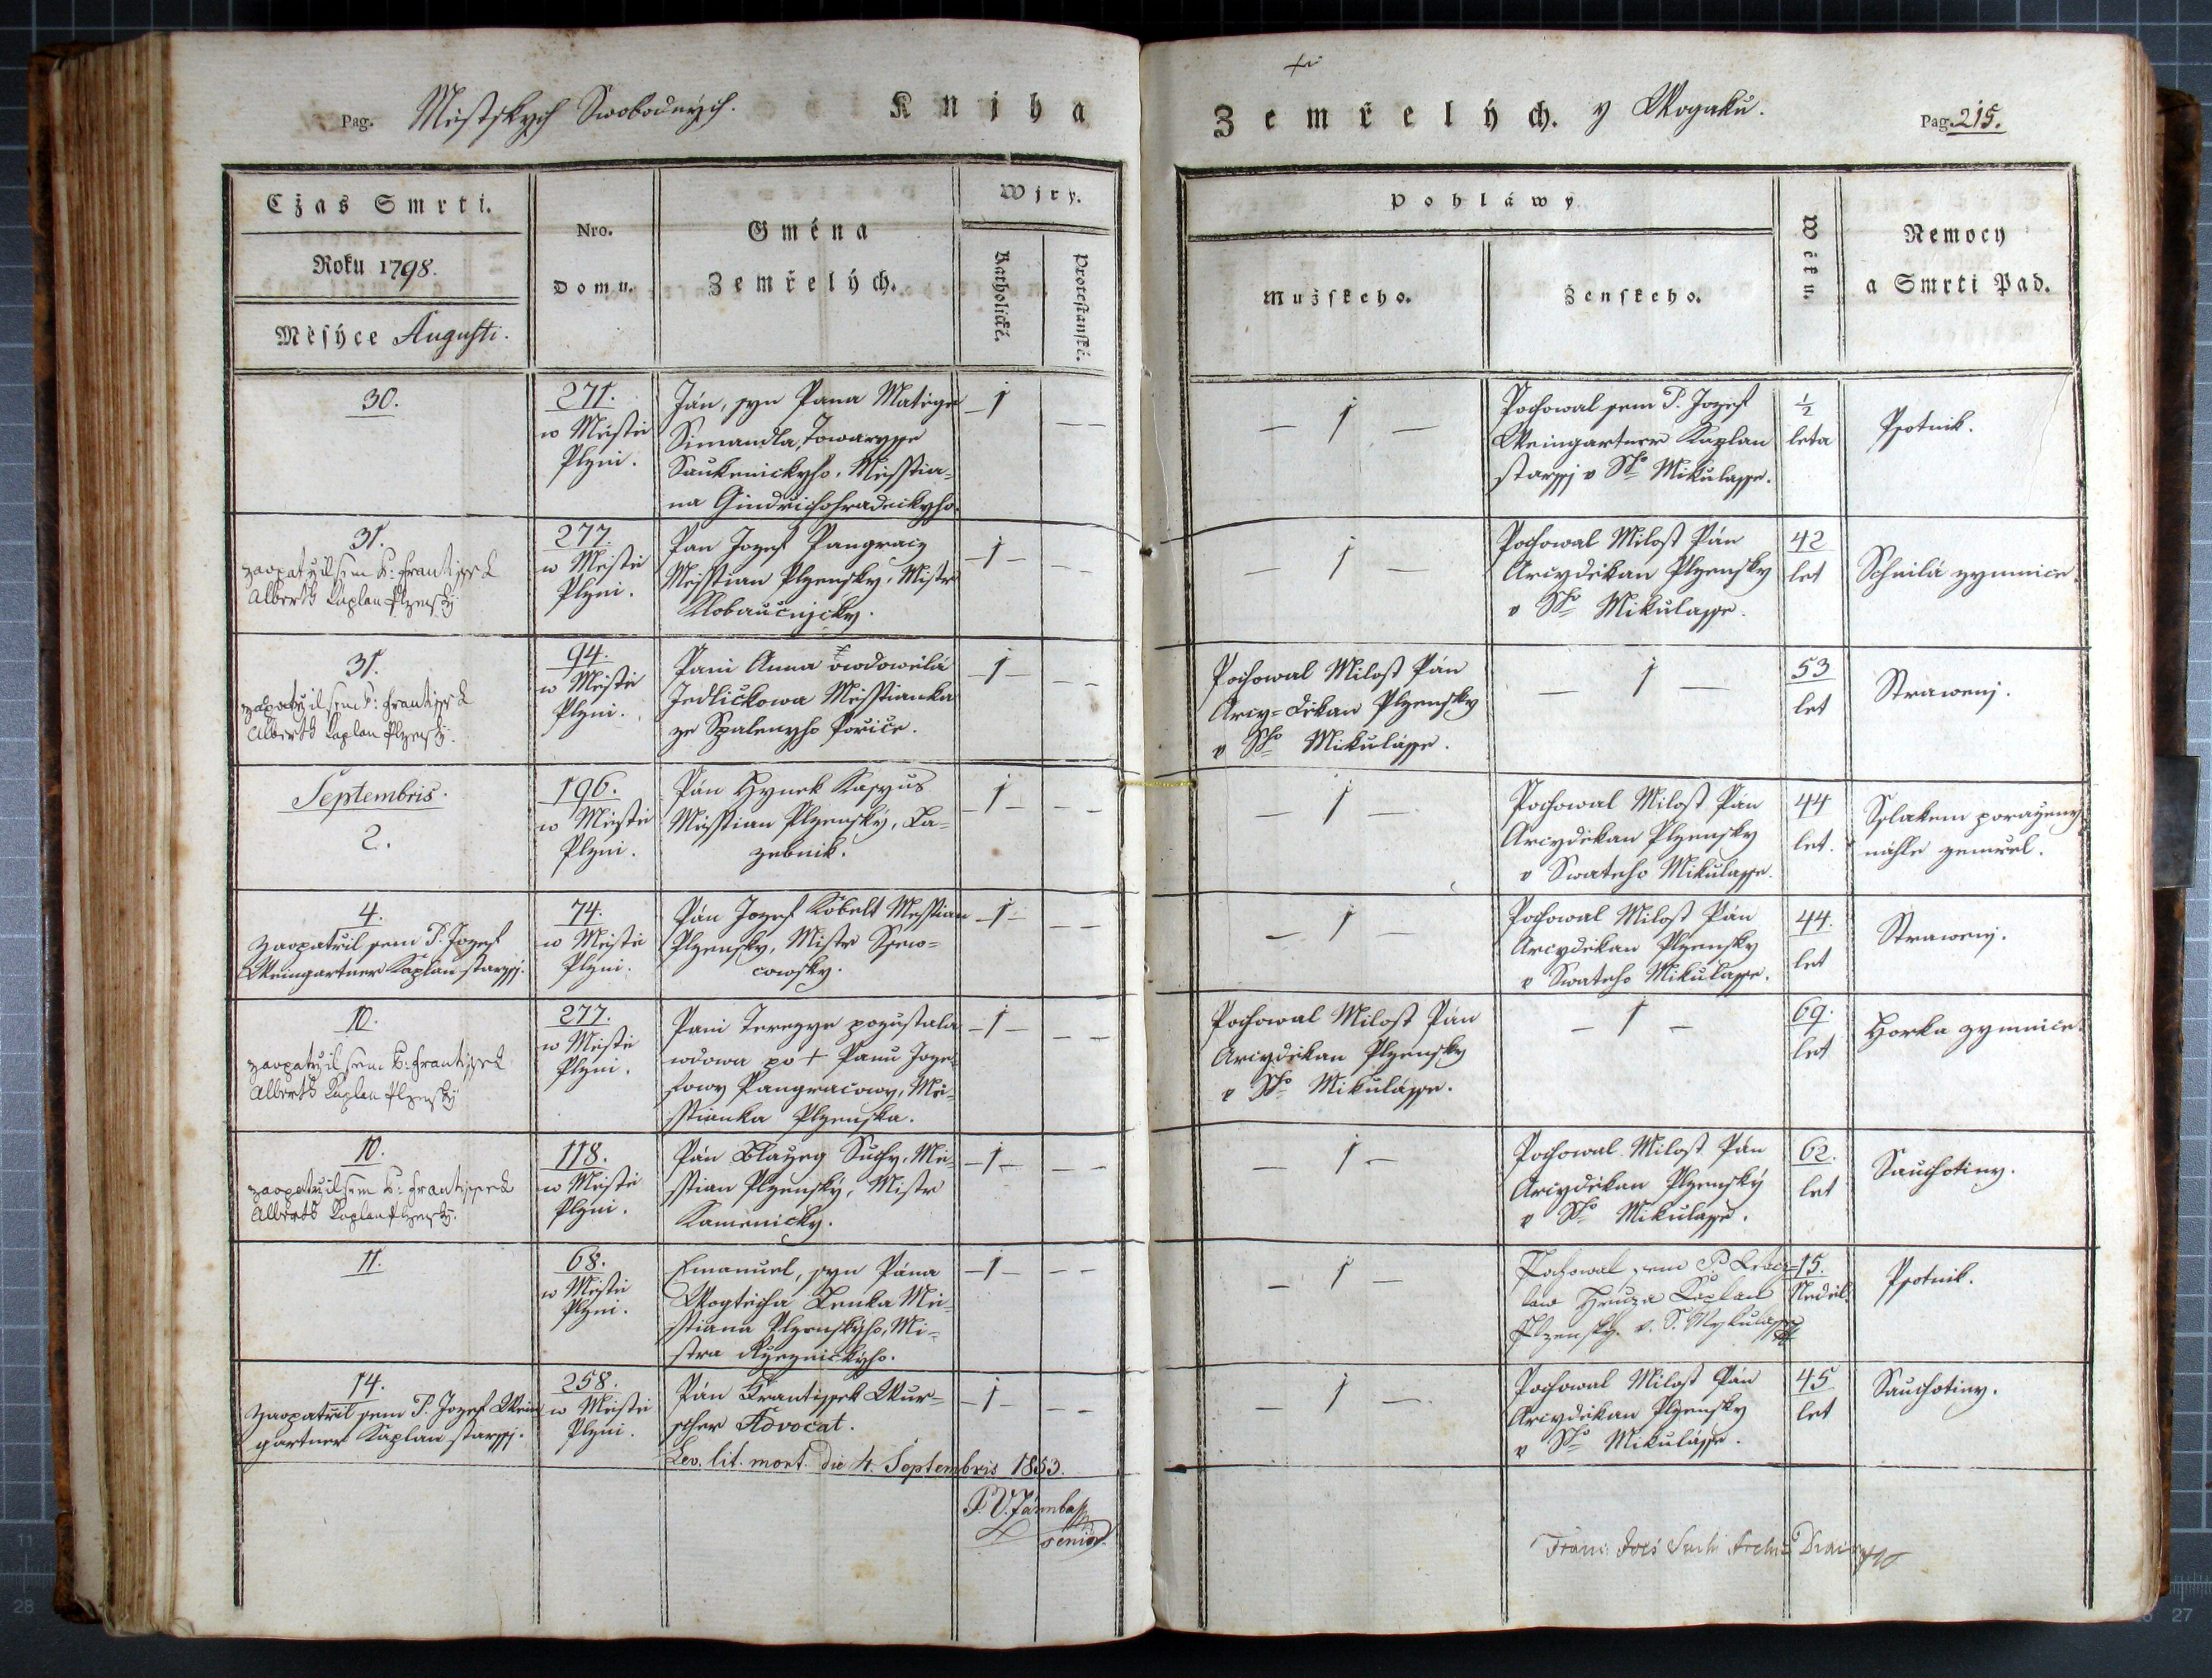 Pag. Mestskych Swobodnych. Knjha
Zemřelých. y Wogaku. Pag. 215.
Cžas Smrti.
Roku 1798.
Měsýce Augusti.
Nro.
Domu.
Gména
Zemřelých.
Wjry.
Katholické.
Protestanské.
Pohláwy
Mužského.
Ženského.
Wěku.
Nemocy
a Smrti Pad.
30.
271.
w Městie
Plzni.
Ján, syn Pana Matěge
Simandla, Towarysse
Saukenickyho, Messtia=
na Gindrichohradeckyho.
1
1
Pochowal sem P. Jozef
Weingartner Kaplan
starssj v Sho Mikulasse.
1/2
leta
Psotnik.
31.
zaopatrzil sem P: Frantissek
Alberth Kaplan Plzensky
277.
w Mestie
Plzni.
Pan Jozef Pangracz
Messtian Plzensky, Mistr
Klobaucnjcky.
1
1
Pochowal Milost Pán
Arcyděkan Plzensky
v Sho Mikulasse.
42
let
Schnilá zymnice.
31.
zaopatrzil sem P: Frantissek
Alberth Kaplan Plzensky.
94.
w Městie
Plzni.
Pani Anna owdowělá
Jedličkowa Messtianka
ze Spalenyho Poriče.
1
Pochowal Milost Pán
Arcy=Děkan Plzensky
v Sho Mikulásse.
1
53
let
Strawenj.
Septembris.
2.
196.
w Městie
Plzni.
Pán Hynek Kasyus
Messtian Plzensky, La=
zebnik.
1
1
Pochowal Milost Pán
Arcyděkan Plzensky
v Swateho Mikulasse.
44
let.
Sslakem porazeny
náhle zemrel.
4.
Zaopatřil sem P. Jozef
Weingartner Kaplan starssj.
74.
w Městie
Plzni.
Pán Jozef Kobelt Messtian
Plzensky, Mistr Ssew=
cowsky.
1
1
Pochowal Milost Pán
Arcyděkan Plzensky
v Swateho Mikulasse.
44.
let
Strawenj.
10.
zaopatrzil sem P: Frantissek
Alberth Kaplan Plzensky
277.
w Městie
Plzni.
Pani Terezye pozustala
wdowa po + Panu Joze=
fowy Pangracowy, Mě=
sstianka Plzenska.
1
Pochowal Milost Pán
Arcyděkan Plzensky
v Sho Mikulásse.
1
69.
let
Horka zymnice.
10.
zaopatrzil sem P: Frantissek
Alberth Kaplan Plzensky.
118.
w Městie
Plzni.
Pán Blazeg Suchy, Mě=
sstian Plzenský, Mistr
Kamenicky.
1
1
Pochowal Milost Pán
Arcyděkan Plzenský
v Sho Mikulasse.
62.
let
Sauchotiny.
11.
68.
w Městie
Plzni.
Emanuel, syn Pána
Wogtěcha Lenka Mě=
sstiana Plzenskyho, Mi=
stra Ryeznickyho.
1
1
Pochowal sem P.
Hruza Kaplan
Plzensky. v. S. Mykulasse
15.
Neděl.
Psotnik.
14.
Zaopatřil sem P. Jozef Wein
gartner Kaplan starssj.
258.
w Městie
Plzni.
Pán Frantissek Wur=
scher Advocat.
Lev. lit. mort. die 4. Septembris 1853.
1
1
Pochowal Milost Pán
Arcyděkan Plzensky
v Sho Mikulásse.
45
let
Sauchotiny.
senior.